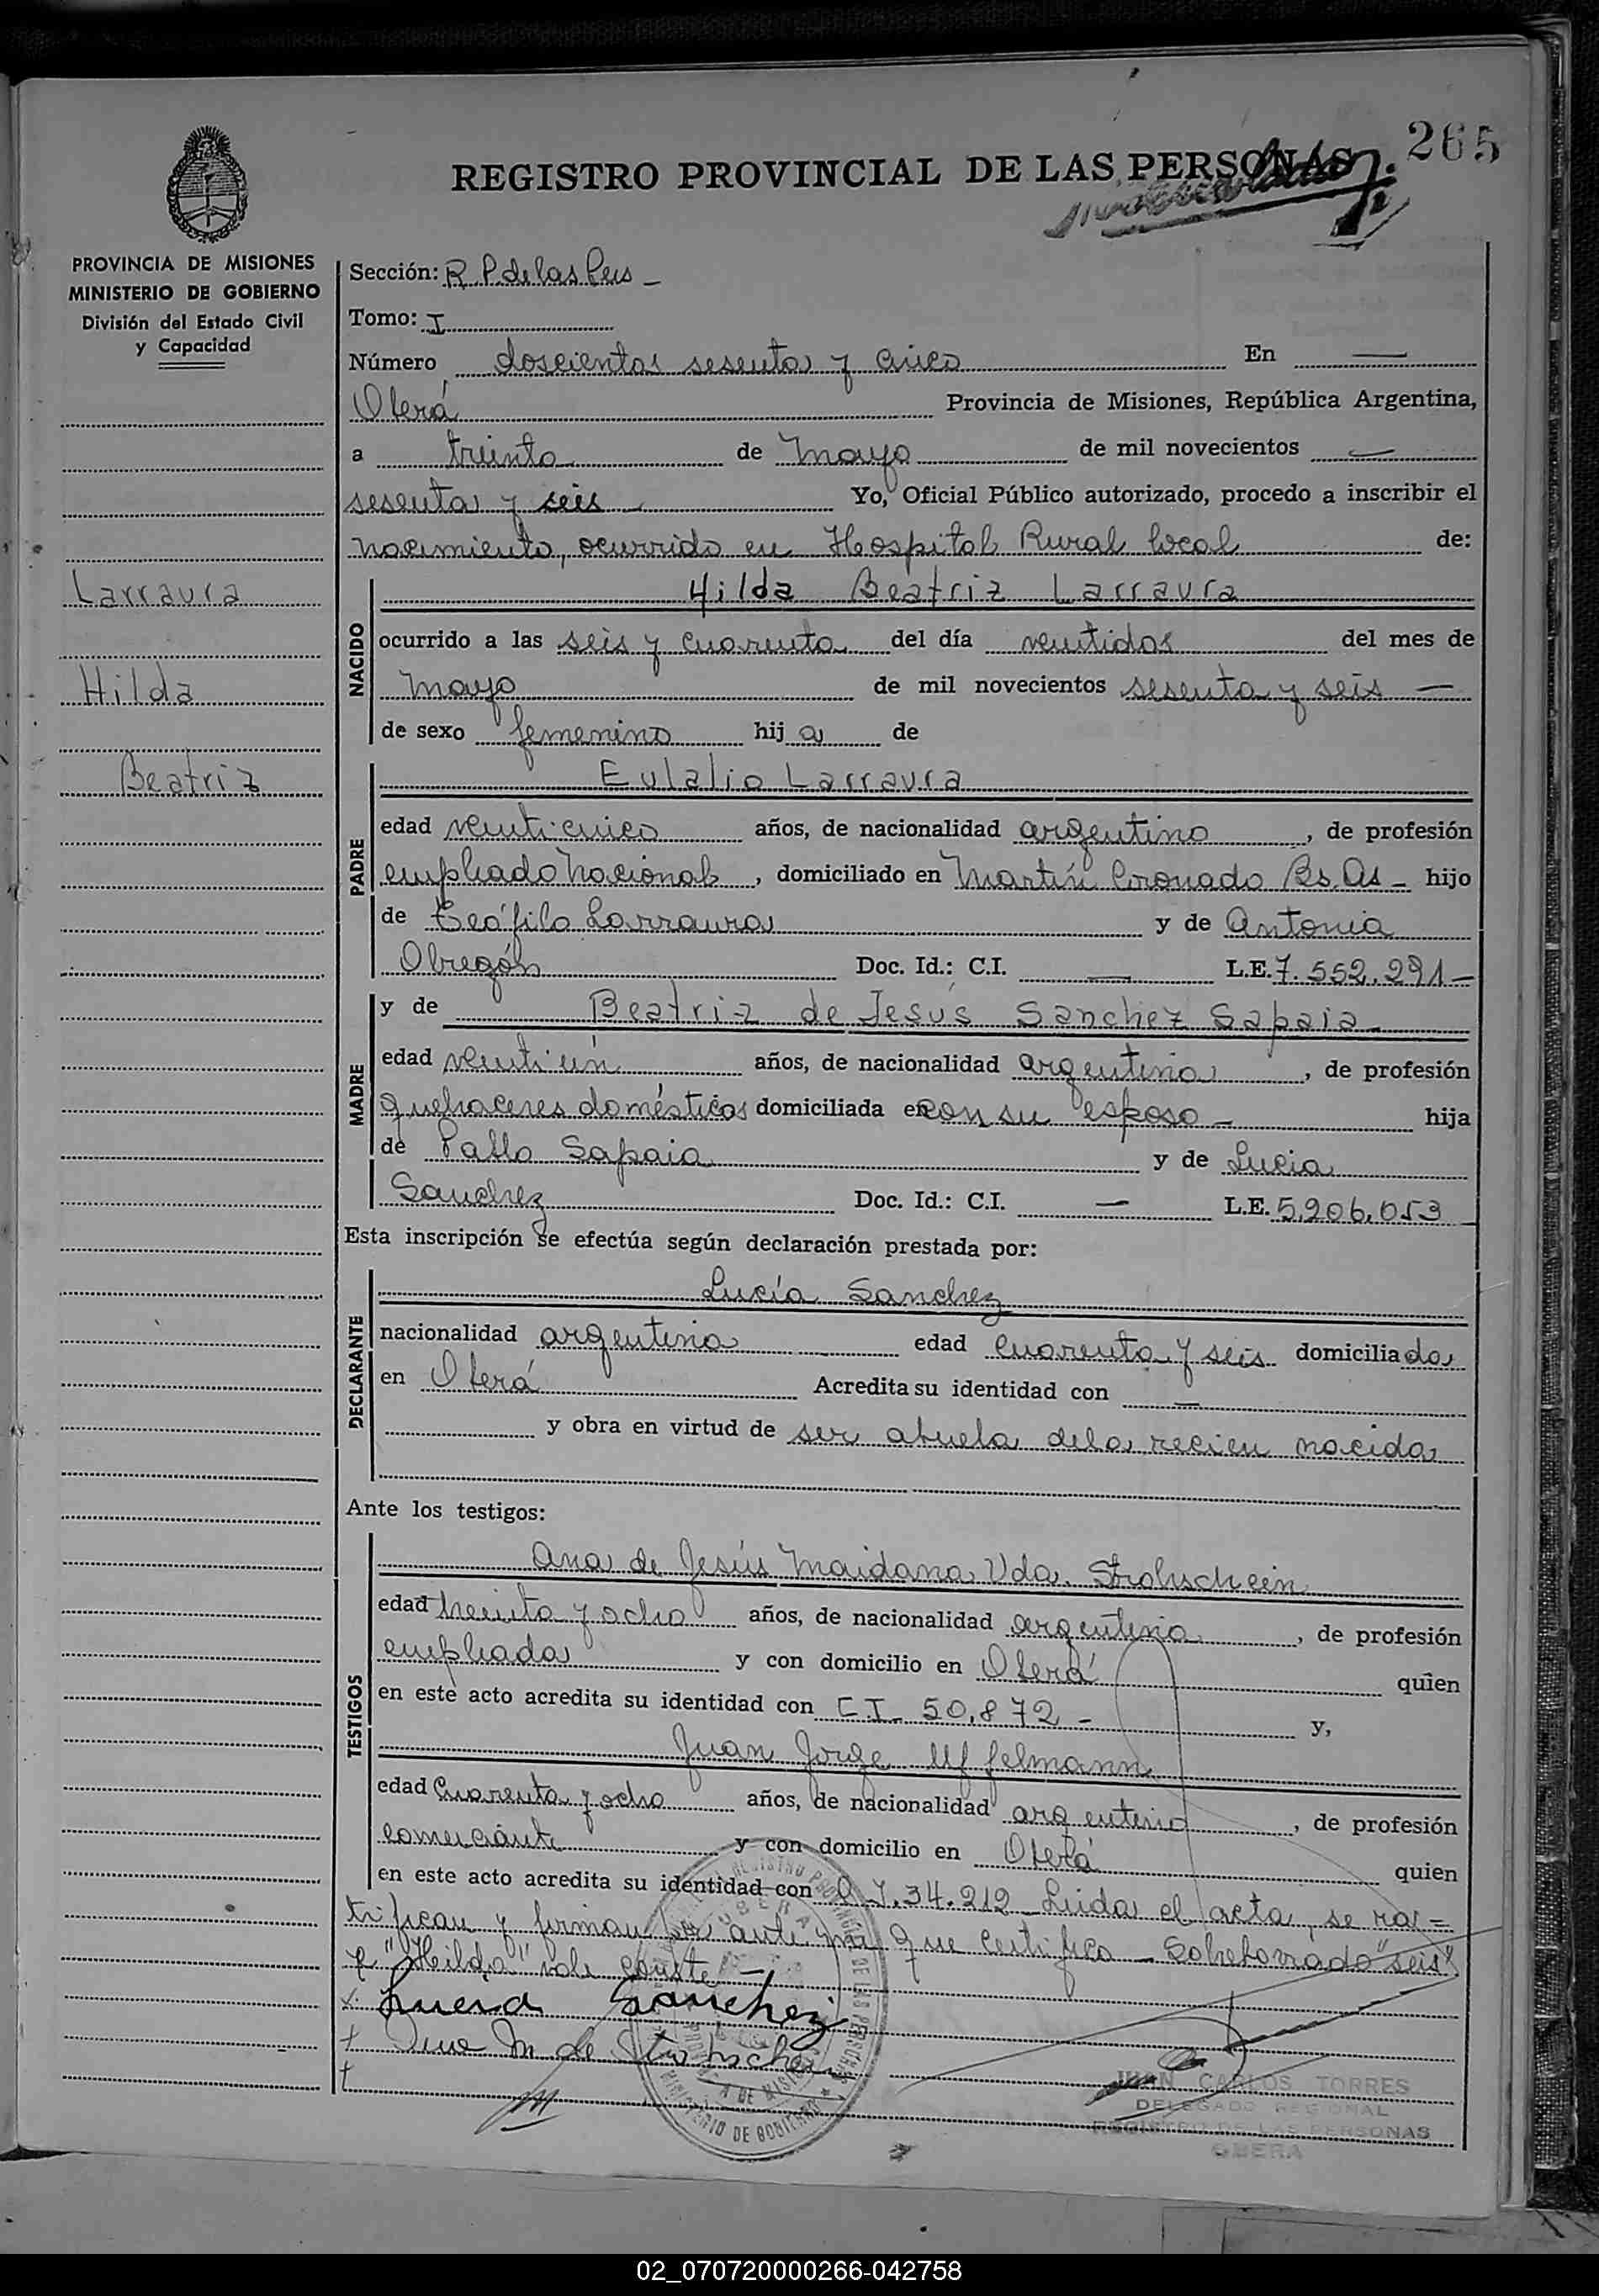 265
REGISTRO PROVINCIAL DE LAS PERSONAS
PROVINCIA DE MISIONES
MINISTERIO DE GOBIERNO
División del Estado Civil
y Capacidad
Larraura
Hilda
Beatriz
Sección: R.P. de las Pers —
Tomo: I
Número doscientos sesenta y cinco En —
Oberá Provincia de Misiones, República Argentina,
a treinta de Mayo de mil novecientos —
sesenta y seis — Yo, Oficial Público autorizado, procedo a inscribir el
nacimiento, ocurrido en Hospital Rural local de:
NACIDO
Hilda Beatriz Larraura
ocurrido a las seis y cuarenta del día veintidos del mes de
Mayo de mil novecientos sesenta y seis —
de sexo femenino hij a de
PADRE
Eulalio Larraura
edad veinticinco años, de nacionalidad argentino, de profesión
empleado Nacional, domiciliado en Martín Coronado Bs. As - hijo
de Teófilo Larraura y de Antonia
Obregón Doc. Id.: C.I. — L.E. 7.552.291 —
MADRE
y de Beatriz de Jesús Sanchez Sapaia —
edad veintiún años, de nacionalidad argentina, de profesión
quehaceres domésticos domiciliada en con su esposo — hija
de Pablo Sapaia y de Lucia
Sanchez Doc. Id.: C.I. — L.E. 5.206.053 —
Esta inscripción se efectúa según declaración prestada por:
DECLARANTE
Lucía Sanchez
nacionalidad argentina edad cuarenta y seis domiciliada
en Oberá Acredita su identidad con —
y obra en virtud de ser abuela dela recien nacida
Ante los testigos:
TESTIGOS
Ana de Jesús Maidana Vda. Strohschein
edad treinta y ocho años, de nacionalidad argentina, de profesión
empleada y con domicilio en Oberá quien
en este acto acredita su identidad con C I. 50.872 — y,
Juan Jorge Uffelmann
edad Cuarenta y ocho años, de nacionalidad argentino, de profesión
comerciante y con domicilio en Oberá quien
en este acto acredita su identidad con 34.212 Leída el acta, se ra=
tifican y firman por ante mi que certifico — Sobreborrado "seis"
y "Hilda" vale conste —
x Lucia Sanchez
+ Ana M de Strohschein
+
JUAN CARLOS TORRES
DELEGADO REGIONAL
REGISTRO DE LAS PERSONAS
OBERA
02_070720000266-042758